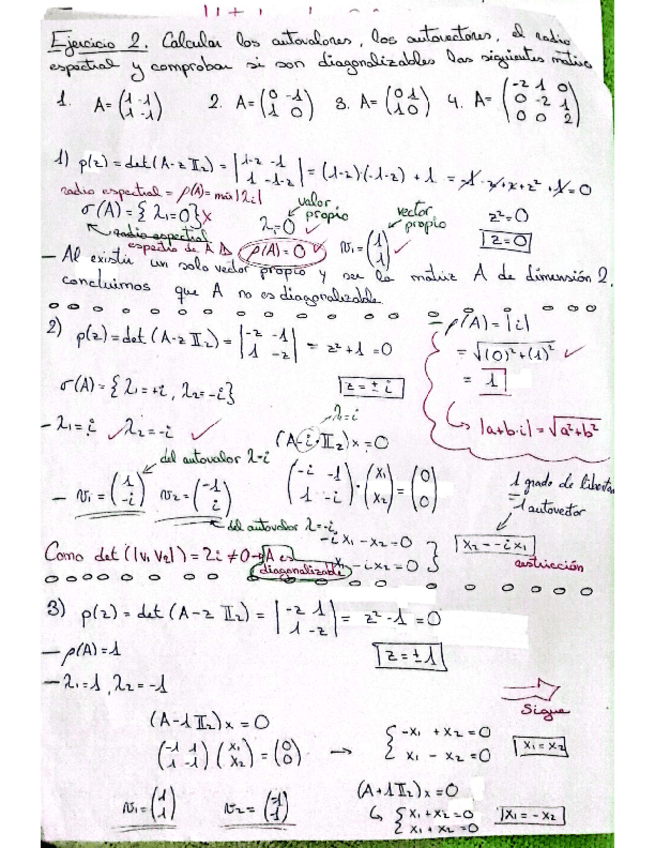 Ejercicio 2. Calcular los autovalores, los autovectores, el radio
espectral y comprobar si son diagonalizables las siguientes matrices
1. A=(1 -1; 1 -1)  2. A=(0 -1; 1 0)  3. A=(0 1; 1 0)  4. A=(-2 1 0; 0 -2 1; 0 0 2)
1) p(z)=det(A-zII₂)=|1-z -1; 1 -1-z|=(1-z)·(-1-z)+1 = -1-z+z+z²+1=0
radio espectral = ρ(A)=máx|λi|
σ(A)={λ₁=0}
radio espectral
espectro de A
λ₁=0 valor propio
ρ(A)=0
v₁=(1; 1) vector propio
z²=0
z=0
- Al existir un solo vector propio y ser la matriz A de dimensión 2,
concluimos que A no es diagonalizable
2) p(z)=det(A-zII₂)=|-z -1; 1 -z|= z²+1=0
- ρ(A)=|i|
=√((0)²+(1)²)
= 1
|a+b·i|=√(a²+b²)
σ(A)={λ₁=+i, λ₂=-i}
z=±i
- λ₁=i λ₂=-i
λ=i
(A-i·II₂)x=0
del autovalor λ=i
- v₁=(1; -i) v₂=(-1; i)
(-i -1; 1 -i)·(x₁; x₂)=(0; 0)
1 grado de libertad
=1 autovector
del autovalor λ=-i
-ix₁-x₂=0
x₁-ix₂=0
x₂=-ix₁
restricción
Como det(|v₁ v₂|)=2i≠0→A es
diagonalizable
3) p(z)=det(A-zII₂)=|-z 1; 1 -z|= z²-1=0
- ρ(A)=1
z=±1
- λ₁=1, λ₂=-1
Sigue
(A-1II₂)x=0
(-1 1; 1 -1)(x₁; x₂)=(0; 0) →
-x₁+x₂=0
x₁-x₂=0
x₁=x₂
v₁=(1; 1) v₂=(-1; 1)
(A+1II₂)x=0
x₁+x₂=0
x₁+x₂=0
x₁=-x₂